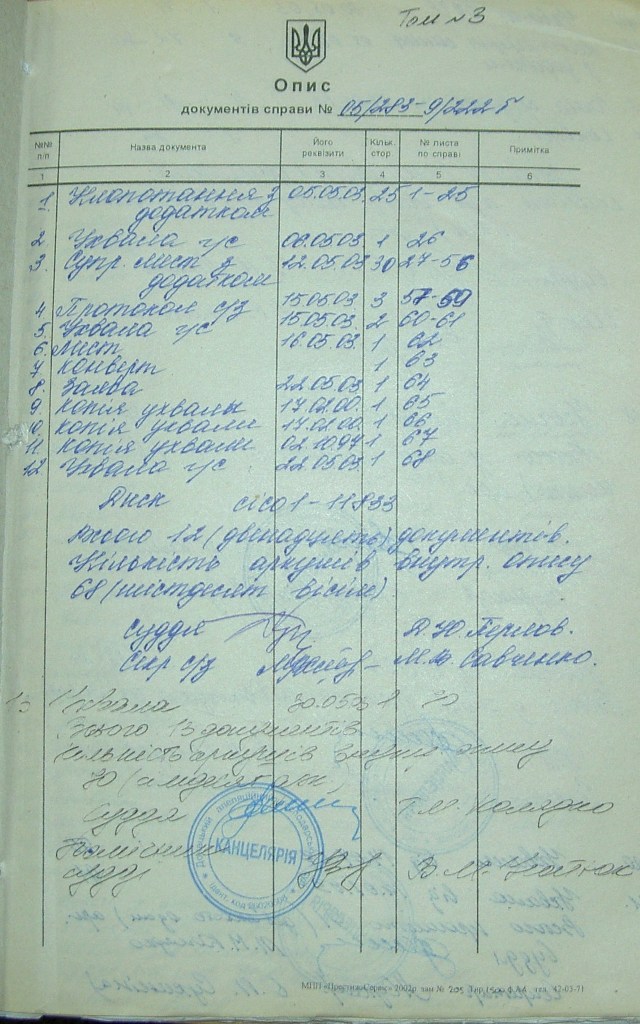 Том №3
Опис
документів справи № 05/283-9/222
№№ п/п Назва документа Його реквізити Кільк. стор № листа по справі Примітка
1 2 3 4 5 6
1. Клопотання з додатком 05.05.03. 25 1-25
2. Ухвала г/с 06.05.03 1 26
3. Супр. лист з додатком 12.05.03 30 27-56
4 Протокол с/з 15.05.03. 3 57-59
5. Ухвала г/с 15.05.03. 2 60-61
6. Лист 16.05.03. 1 62
7 Конверт 1 63
8. Заява 22.05.03 1 64
9. Копія ухвали 17.02.00. 1 65
10. Копія ухвали 17.01.00. 1 66
11 Копія ухвали 02.10.97 1 67
12 Ухвала г/с 22.05.03 1 68
Диск 1-11833
Всього 12 (дванадцять) документів.
Кількість аркушів внутр. опису
68 (шістдесят вісім).
Суддя Д.Ю.
Секр с/з М.Ю. Савченко.
13 Ухвала 30.05.03 1 70
Всього 13 документів
Кількість аркушів внутр опису
70 (сімдесят)
Суддя Г.М. Колядко
Помічник
судді В.М.
КАНЦЕЛЯРІЯ